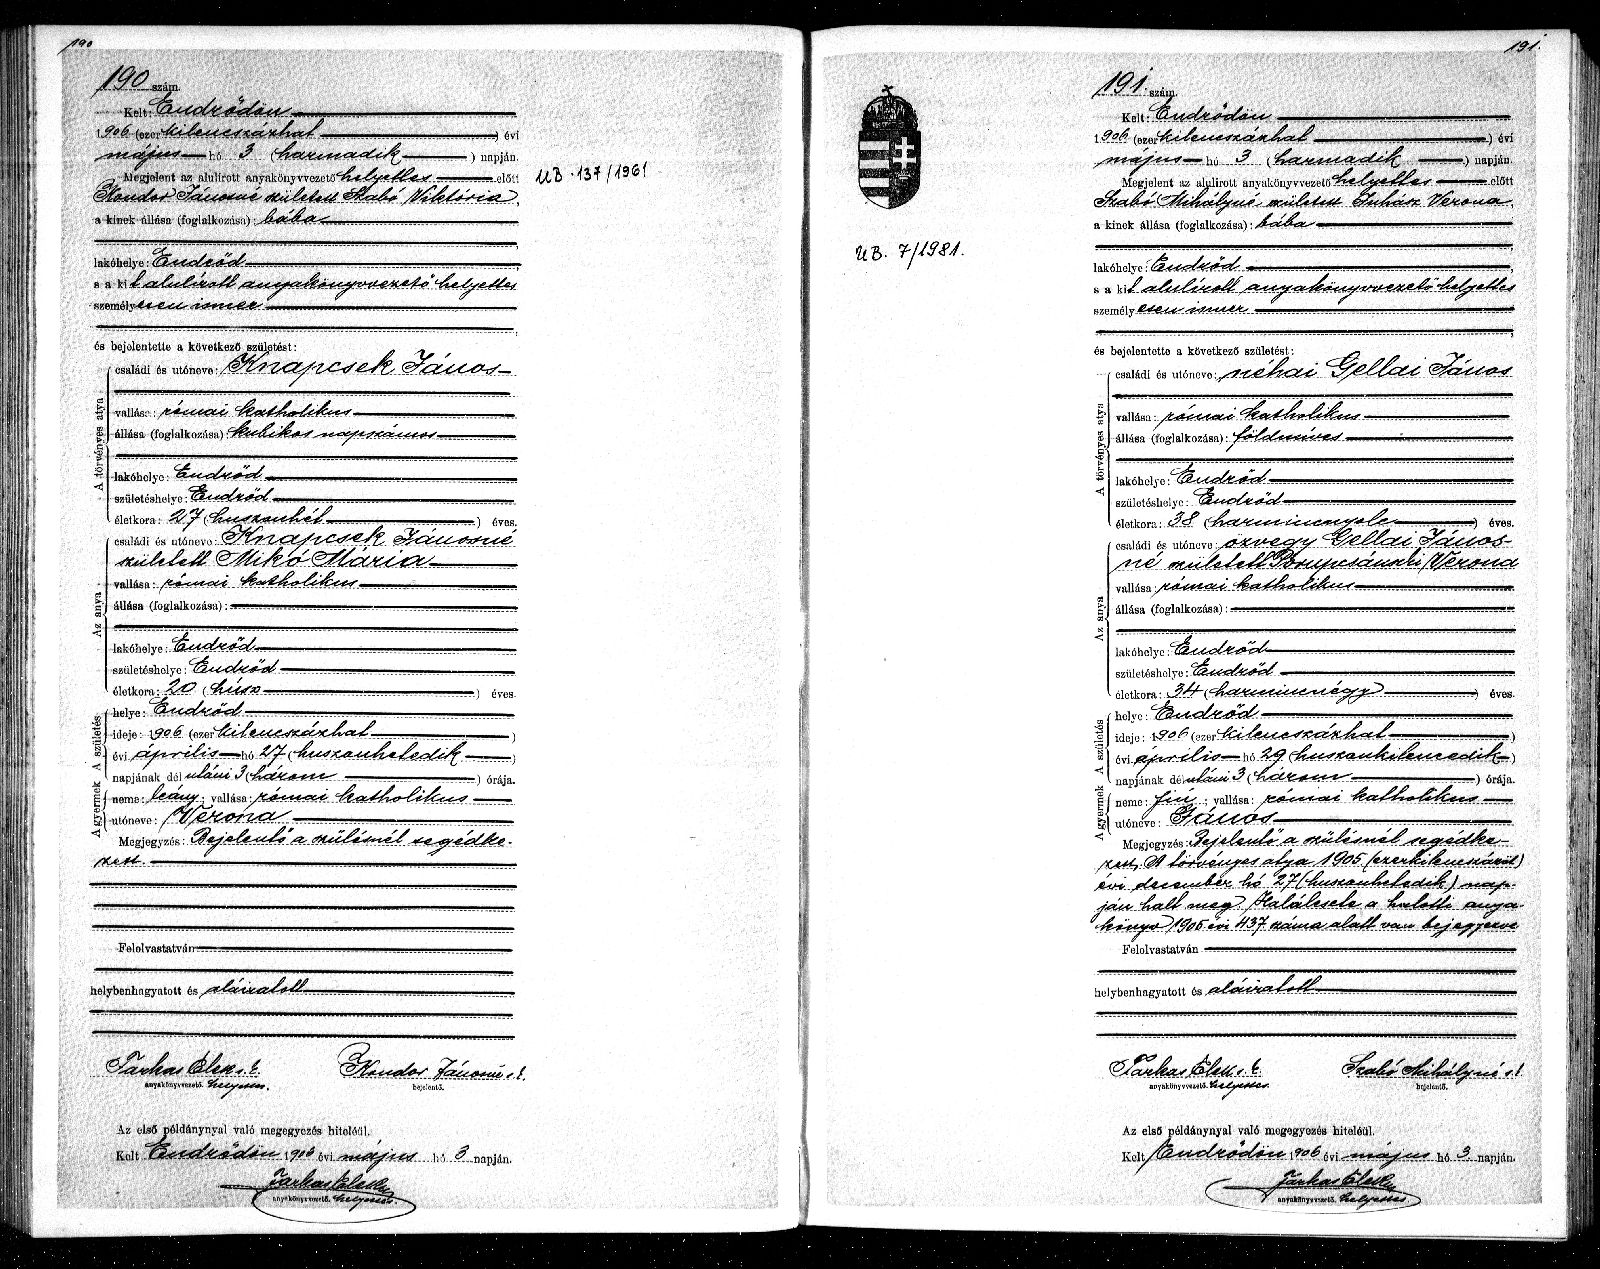 190
190 szám.
Kelt: Endrődön
1906 (ezer kilencszázhat ) évi
május hó 3 (harmadik ) napján.
Megjelent az alulirott anyakönyvvezető helyettes előtt
Kondor Jánosné született Szabó Viktória,
a kinek állása (foglalkozása): bába
lakóhelye: Endrőd
s a kit alulirott anyakönyvvezető helyettes
személyesen ismer
és bejelentette a következő születést:
A törvényes atya
családi és utóneve: Knapcsek János
vallása: római katholikus
állása (foglalkozása): kubikos napszámos
lakóhelye: Endrőd
születéshelye: Endrőd
életkora: 27 (huszonhét ) éves.
Az anya
családi és utóneve: Knapcsek Jánosné
született Mikó Mária
vallása: római katholikus
állása (foglalkozása):
lakóhelye: Endrőd
születéshelye: Endrőd
életkora: 20 (húsz ) éves.
A születés
helye: Endrőd
ideje: 1906 (ezer kilencszázhat )
évi április hó 27 (huszonhetedik )
napjának dél utáni 3 (három ) órája.
A gyermek
neme: leány; vallása: római katholikus
utóneve: Verona
Megjegyzés: Bejelentő a szülésnél segédke-
zett.
Felolvastatván
helybenhagyatott és aláiratott
Farkas Elek s. k. Kondor Jánosné s. k.
anyakönyvvezető. helyettes. bejelentő.
Az első példánynyal való megegyezés hiteléül.
Kelt Endrődön 1906 évi május hó 3 napján.
Farkas Elek
anyakönyvvezető. helyettes
UB. 137/1961
191.
191. szám.
UB. 7/1981.
Kelt: Endrődön
1906 (ezer kilencszázhat ) évi
május hó 3 (harmadik ) napján.
Megjelent az alulirott anyakönyvvezető helyettes előtt
Szabó Mihályné született Juhász Verona,
a kinek állása (foglalkozása): bába
lakóhelye: Endrőd
s a kit alulirott anyakönyvvezető helyettes
személyesen ismer
és bejelentette a következő születést:
A törvényes atya
családi és utóneve: néhai Gellai János
vallása: római katholikus
állása (foglalkozása): földmíves
lakóhelye: Endrőd
születéshelye: Endrőd
életkora: 38 (harmincnyolc ) éves.
Az anya
családi és utóneve: özvegy Gellai János-
né született Verona
vallása: római katholikus
állása (foglalkozása):
lakóhelye: Endrőd
születéshelye: Endrőd
életkora: 34 (harmincnégy ) éves.
A születés
helye: Endrőd
ideje: 1906 (ezer kilencszázhat )
évi április hó 29 (huszonkilencedik )
napjának dél utáni 3 (három ) órája.
A gyermek
neme: fiú; vallása: római katholikus
utóneve: János
Megjegyzés: Bejelentő a szülésnél segédke-
zett. A törvényes atya 1905 (ezerkilencszázöt)
évi december hó 27 (huszonhetedik) nap-
ján halt meg. Halálesete a halotti anya-
könyv 1905 évi 437 száma alatt van bejegyezve
Felolvastatván
helybenhagyatott és aláiratott
Farkas Elek s. k. Szabó Mihályné s. k.
anyakönyvvezető. helyettes. bejelentő.
Az első példánynyal való megegyezés hiteléül.
Kelt Endrődön 1906 évi május hó 3 napján.
Farkas Elek
anyakönyvvezető. helyettes